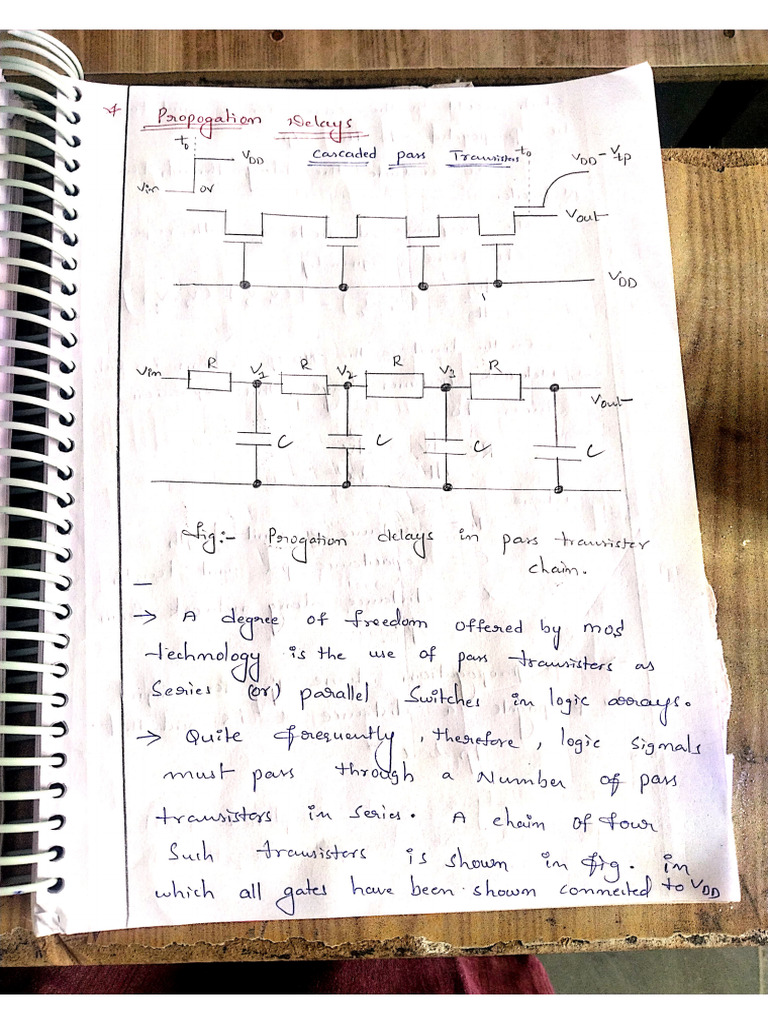 * Propogation Delays
to
VDD
Cascaded pass Transistors
to
VDD - Vtp
Vin
0V
Vout
VDD
Vin R V1 R V2 R V3 R
Vout
C C C C
Fig:- Progation delays in pass transister
chain.
→ A degree of freedom offered by mos
technology is the use of pass transisters as
Series (or) parallel Switches in logic arrays.
→ Quite frequently, therefore, logic signals
must pass through a Number of pass
transistors in series. A chain of four
Such transisters is shown in fig. in
which all gates have been shown connected to VDD